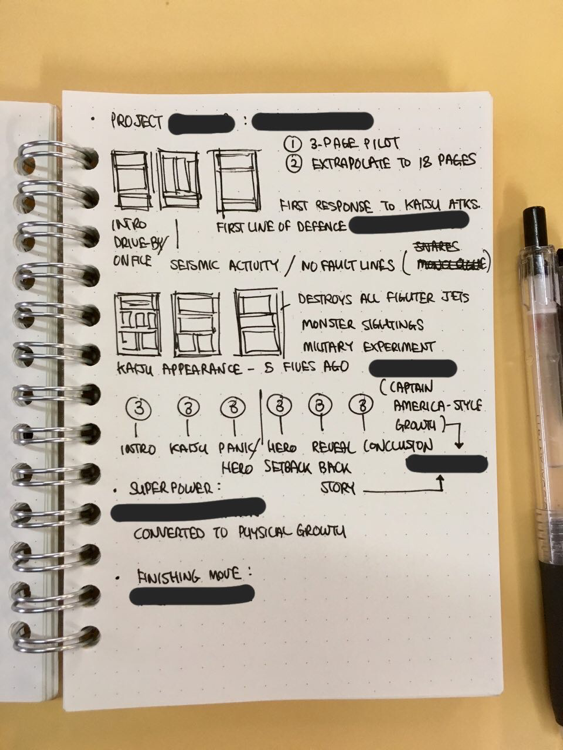 • PROJECT :
① 3-PAGE PILOT
② EXTRAPOLATE TO 18 PAGES
FIRST RESPONSE TO KAIJU ATKS.
INTRO
DRIVE-BY/
ON FILE
FIRST LINE OF DEFENCE
SEISMIC ACTIVITY / NO FAULT LINES (
DESTROYS ALL FIGHTER JETS
MONSTER SIGHTINGS
MILITARY EXPERIMENT
KAIJU APPEARANCE - 5 FIVES AGO
(CAPTAIN
AMERICA-STYLE
GROWTH)
③ ③ ③ ③ ③ ③
INTRO KAIJU PANIC/ HERO REVEAL CONCLUSION
HERO SETBACK BACK
STORY
• SUPERPOWER:
CONVERTED TO PHYSICAL GROWTH
• FINISHING MOVE: